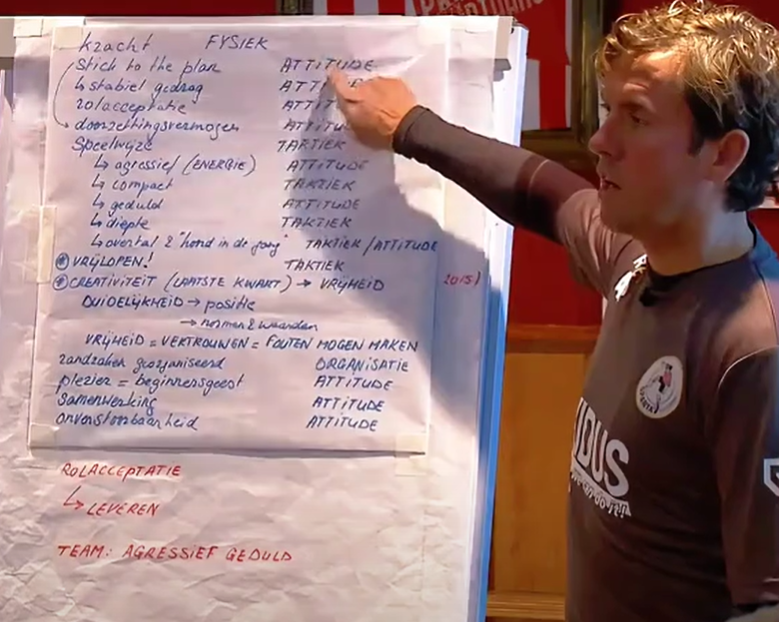 kracht FYSIEK
stick to the plan ATTITUDE
↳ stabiel gedrag ATT
rolacceptatie ATTIT
doorzettingsvermogen ATTITU
Speelwijze TAKTIEK
↳ agressief (ENERGIE) ATTITUDE
↳ compact TAKTIEK
↳ geduld ATTITUDE
↳ diepte TAKTIEK
↳ overtal 2 "hond in de gang" TAKTIEK/ATTITUDE
* VRIJLOPEN! TAKTIEK
* CREATIVITEIT (LAATSTE KWART) → VRIJHEID
DUIDELIJKHEID → positie
→ normen & waarden
VRIJHEID = VERTROUWEN = FOUTEN MOGEN MAKEN
randzaken georganiseerd ORGANISATIE
plezier = beginnersgeest ATTITUDE
samenwerking ATTITUDE
onverstoorbaarheid ATTITUDE
ROLACCEPTATIE
↳ LEVEREN
TEAM: AGRESSIEF GEDULD
SPARTA